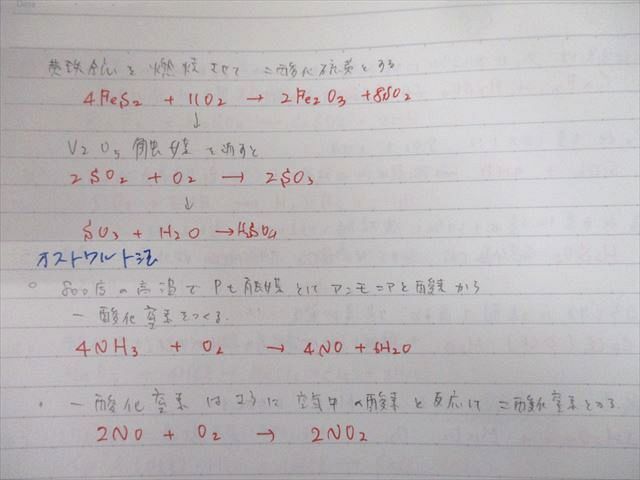 黄鉄鉱を燃焼させて二酸化硫黄とする
4FeS2 + 11O2 → 2Fe2O3 + 8SO2
↓
V2O5 触媒を通すと
2SO2 + O2 → 2SO3
↓
SO3 + H2O → H2SO4
オストワルト法
○ 800度の高温でPt触媒としてアンモニアと酸素から
一酸化窒素をつくる.
4NH3 + O2 → 4NO + 6H2O
・一酸化窒素はさらに空気中の酸素と反応して二酸化窒素となる.
2NO + O2 → 2NO2